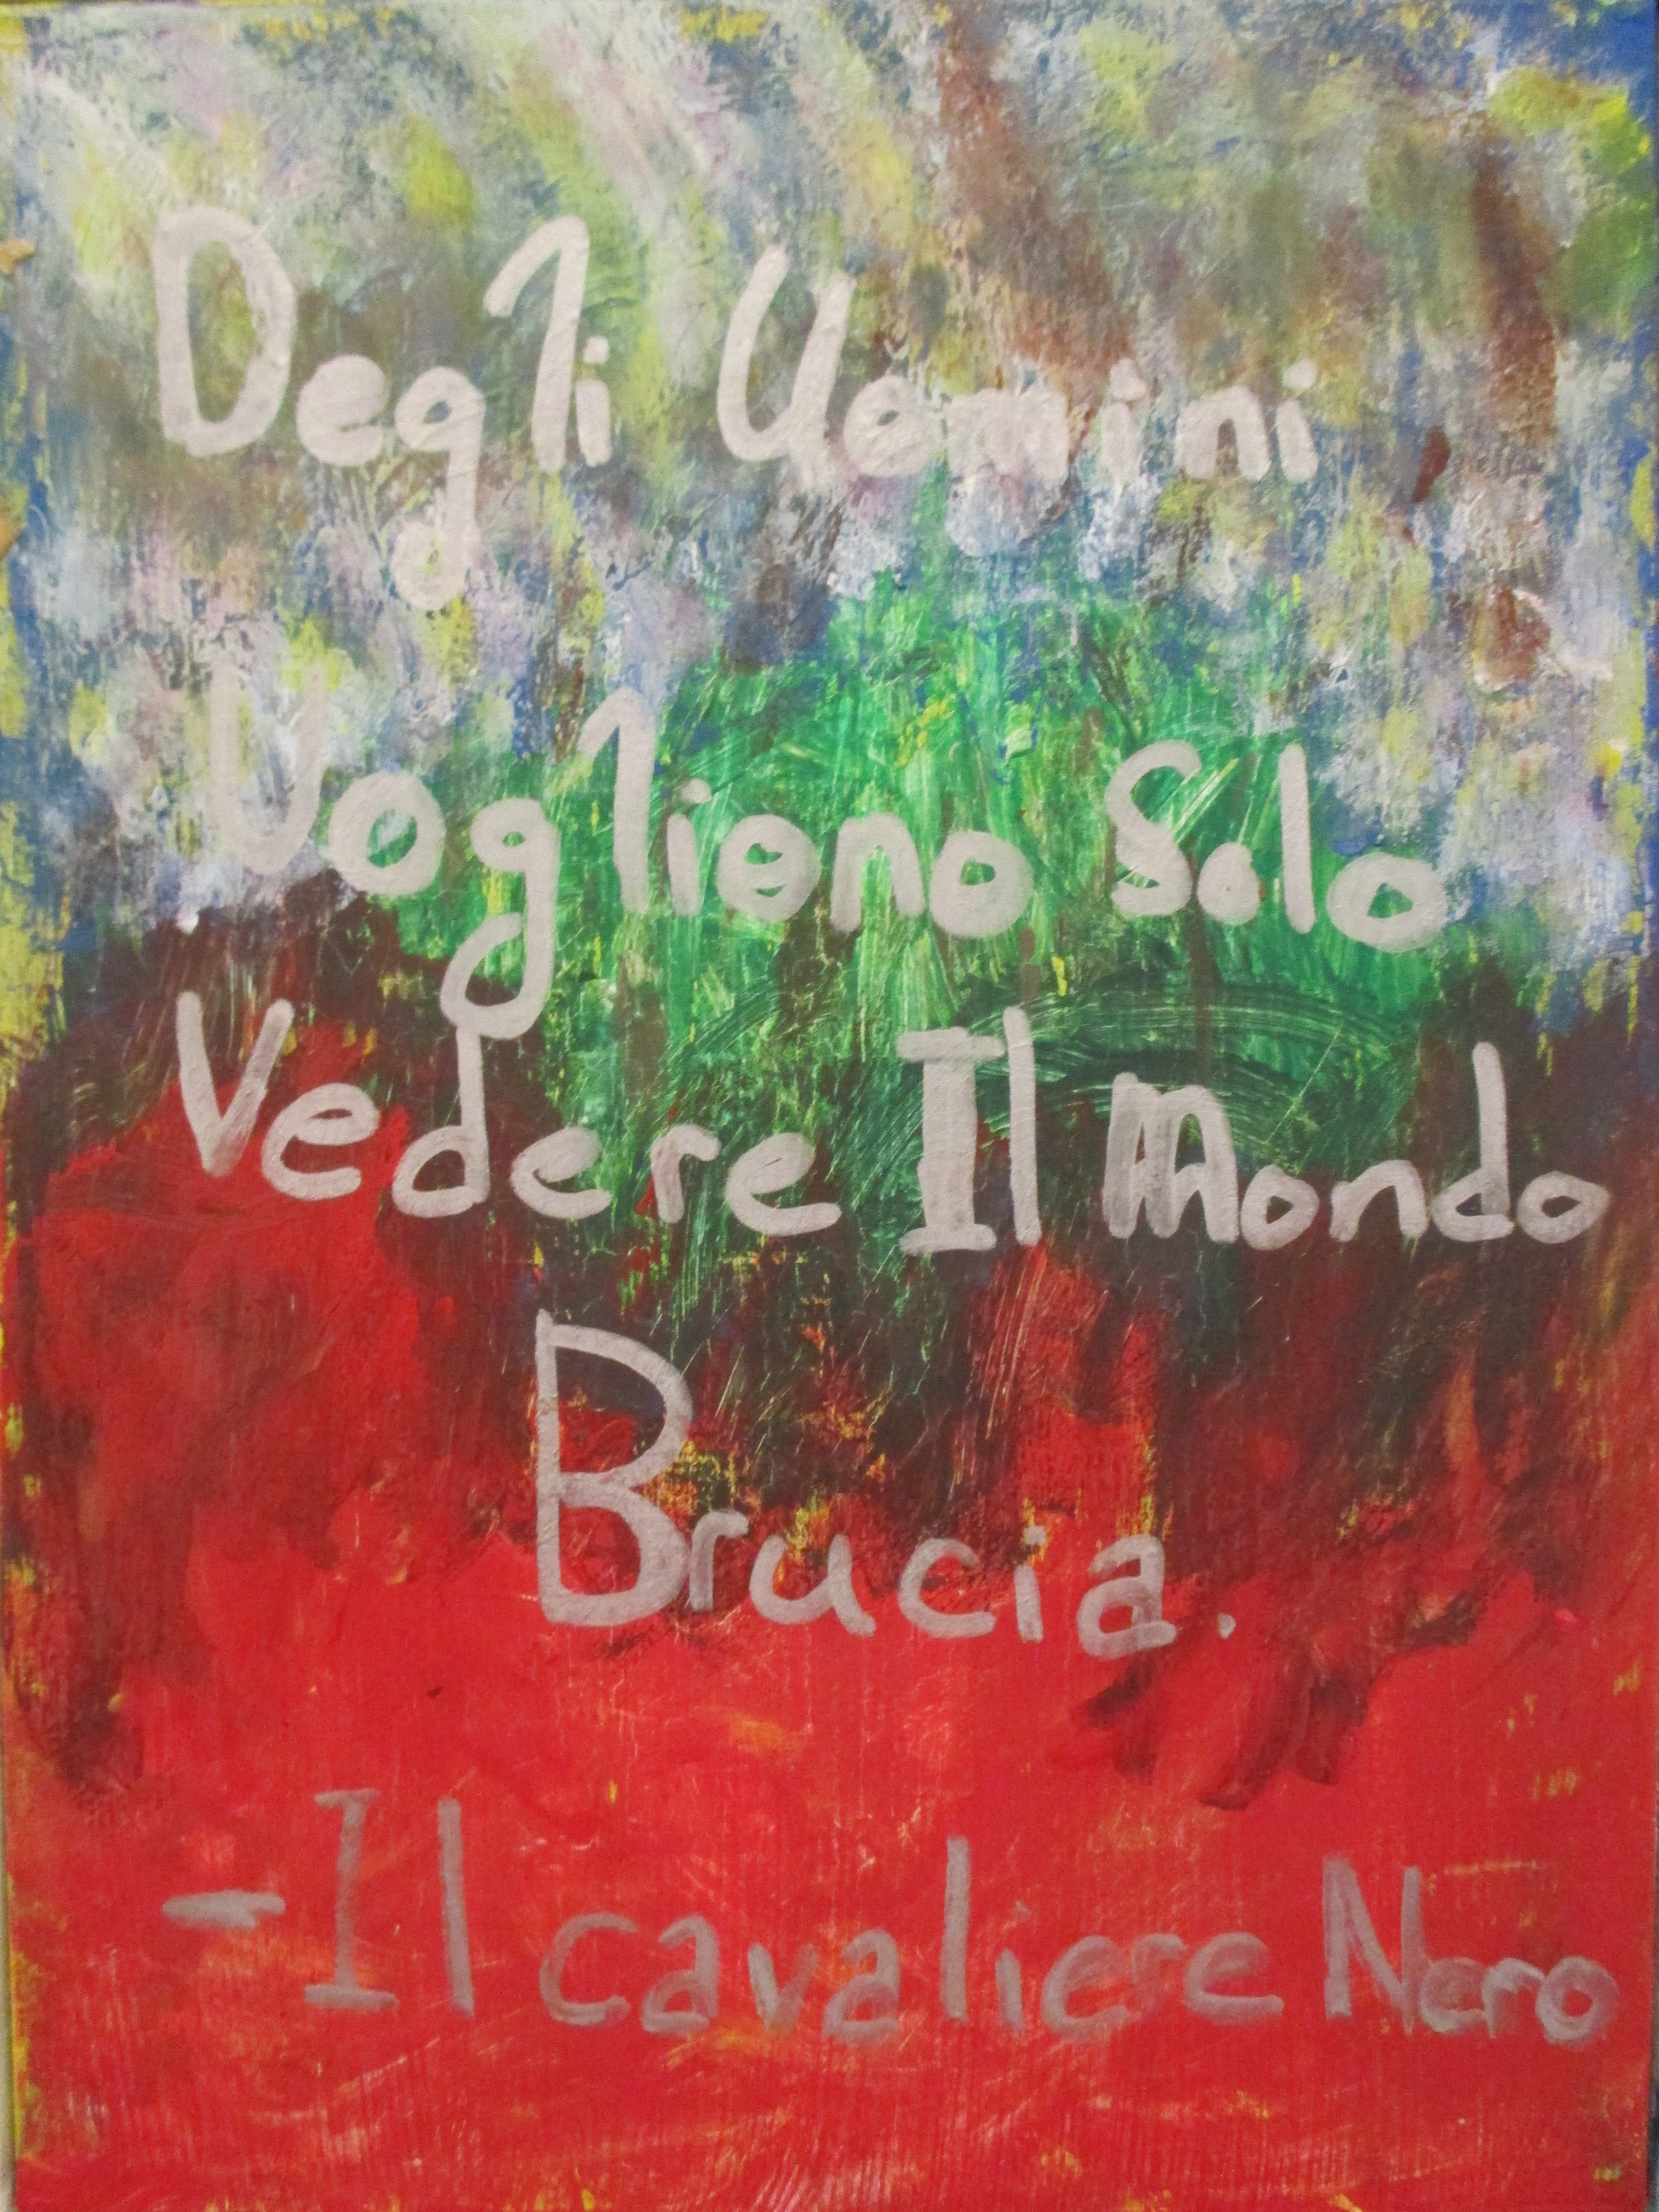 Degli Uomini
Vogliono Solo
Vedere Il Mondo
Brucia.
-Il cavaliere Nero